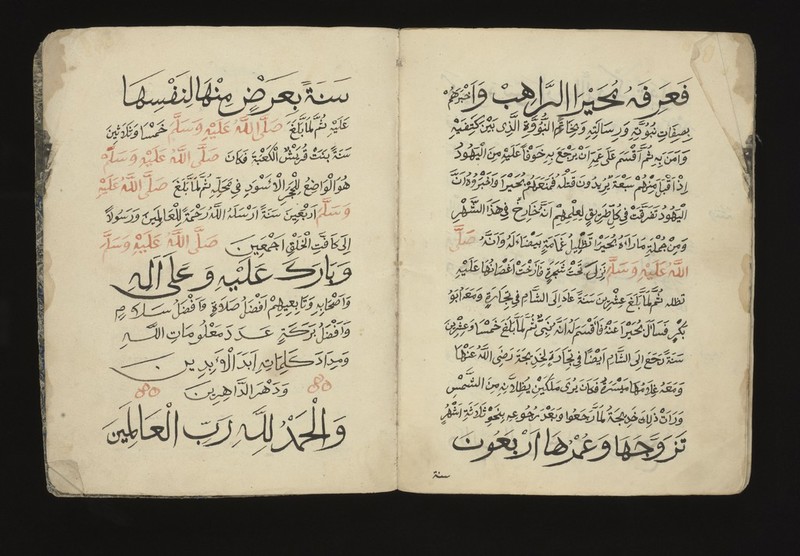 فَعَرِفَهُ بُحَيْرَا الرَّاهِبُ وَاَخْبَرَهُمْ
بِصِفَاتِ نُبُوَّتِهِ وَرِسَالَتِهِ وَبِخَاتَمِ النُّبُوَّةِ الَّذِى بَيْنَ كَتِفَيْهِ
وَاٰمَنَ بِهِ ثُمَّ اَقْسَمَ عَلَى عَمِّهِ اَنْ يَرْجِعَ بِهِ خَوْفًا عَلَيْهِ مِنَ الْيَهُودِ
اِذْ اَقْبَلَ مِنْهُمْ سَبْعَةٌ يُرِيدُونَ قَتْلَهُ فَمَنَعَهُمْ بُحَيْرَا وَاَخْبَرُوهُ اَنَّ
الْيَهُودَ تَفَرَّقَتْ فِى كُلِّ طَرِيقٍ لِعِلْمِهِمْ اَنَّهُ خَارِجٌ فِى هٰذَا الشَّهْرِ
وَمِنْ جُمْلَةِ مَا رَاٰهُ بُحَيْرَا تَظْلِيلُ غَمَامَةٍ بَيْضَاءَ لَهُ وَاَنَّهُ صَلَّى
اللّٰهُ عَلَيْهِ وَسَلَّمَ نَزَلَ تَحْتَ شَجَرَةٍ فَاَرْخَتْ اَغْصَانَهَا عَلَيْهِ
تظله ثُمَّ لَمَّا بَلَغَ عِشْرِينَ سَنَةً عَادَ اِلَى الشَّامِ فِى تِجَارَةٍ وَمَعَهُ اَبُو
بَكْرٍ فَسَاَلَ بُحَيْرَا عَنْهُ فَاَقْسَمَ لَهُ اَنَّهُ نَبِىٌّ ثُمَّ لَمَّا بَلَغَ خَمْسًا وَعِشْرِينَ
سَنَةً رَجَعَ اِلَى الشَّامِ اَيْضًا فِى تِجَارَةٍ لِخَدِيجَةَ رَضِىَ اللّٰهُ عَنْهَا
وَمَعَهُ غُلَامُهَا مَيْسَرَةُ فَكَانَ يَرَى مَلَكَيْنِ يُظِلَّانِهِ مِنَ الشَّمْسِ
وَرَاَتْ ذٰلِكَ خَدِيجَةُ لَمَّا رَجَعُوا وَبَعْدَ رُجُوعِهِ بِنَحْوِ ثَلَاثَةِ اَشْهُرٍ
تَزَوَّجَهَا وَعُمْرُهَا اَرْبَعُونَ
سنة
سَنَةً بِعَرْضٍ مِنْهَا لِنَفْسِهَا
عَلَيْهِ ثُمَّ لَمَّا بَلَغَ صَلَّى اللّٰهُ عَلَيْهِ وَسَلَّمَ خَمْسًا وَثَلَاثِينَ
سَنَةً بَنَتْ قُرَيْشٌ الْكَعْبَةَ فَكَانَ صَلَّى اللّٰهُ عَلَيْهِ وَسَلَّمَ
هُوَ الْوَاضِعُ لِلْحَجَرِ الْاَسْوَدِ فِى مَحَلِّهِ ثُمَّ لَمَّا بَلَغَ صَلَّى اللّٰهُ عَلَيْهِ
وَسَلَّمَ اَرْبَعِينَ سَنَةً اَرْسَلَهُ اللّٰهُ رَحْمَةً لِلْعَالَمِينَ وَرَسُولًا
اِلَى كَافَّةِ الْخَلْقِ اَجْمَعِينَ صَلَّى اللّٰهُ عَلَيْهِ وَسَلَّمَ
وَبَارَكَ عَلَيْهِ وَعَلَى اٰلِهِ
وَاَصْحَابِهِ وَتَابِعِيهِمْ اَفْضَلُ صَلَاةٍ وَاَفْضَلُ سَلَامٍ
وَاَفْضَلُ بَرَكَةٍ عَدَدَ مَعْلُومَاتِ اللّٰهِ
وَمِدَادَ كَلِمَاتِهِ اَبَدَ الْاٰبِدِينَ
وَدَهْرَ الدَّاهِرِينَ
وَالْحَمْدُ لِلّٰهِ رَبِّ الْعَالَمِينَ